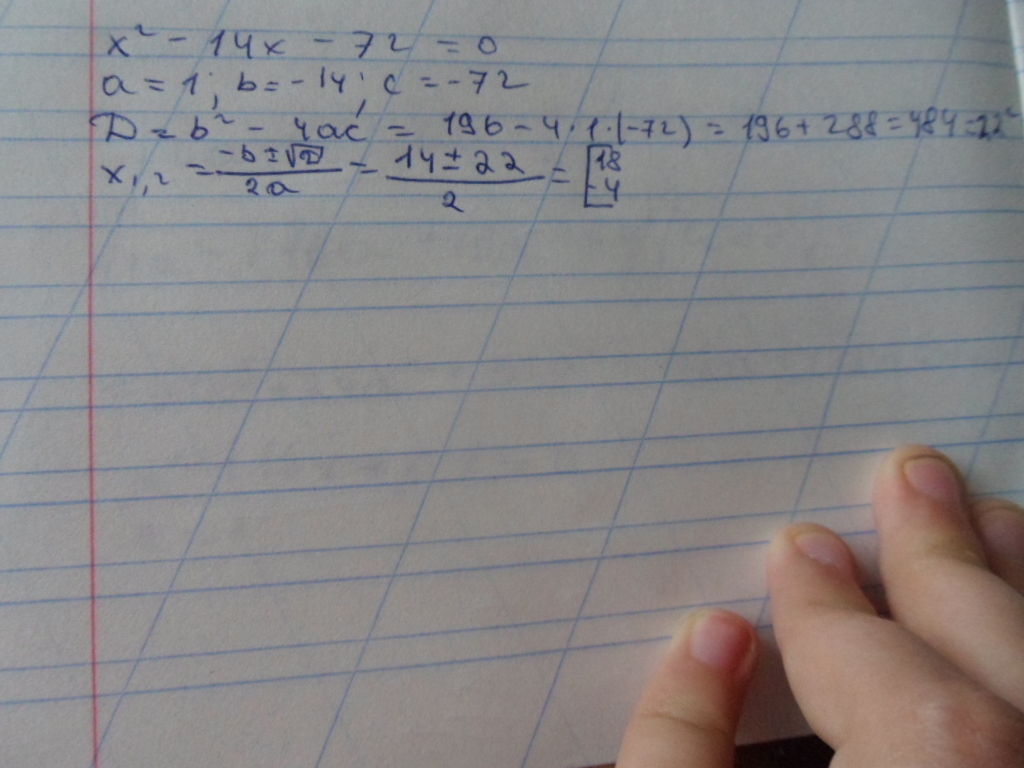 x² - 14x - 72 = 0
a = 1; b = -14; c = -72
D = b² - 4ac = 196 - 4·1·(-72) = 196 + 288 = 484 = 22²
x₁,₂ = (-b ± √D)/2a = (14 ± 22)/2 = [18
-4